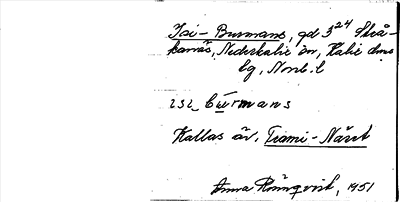 Isi-Burmans, gd 3²⁴ Strå-
kanäs, Nederkalix sn, Kalix dms
lg, Norrb. l
ɪsɪ_bu̱rmans
Kallas äv. Tiami-Näset
Anna Rönnqvist, 1951